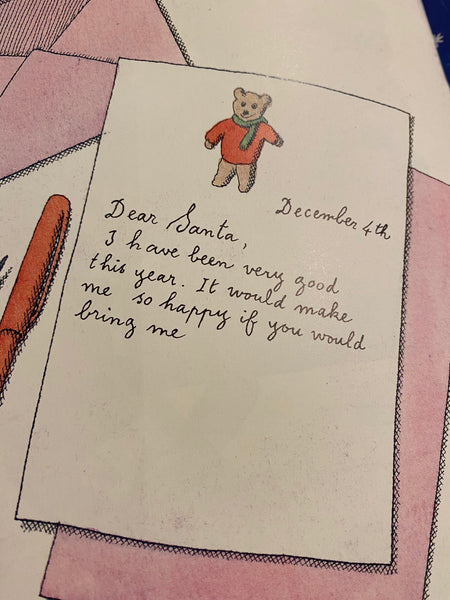 December 4th
Dear Santa,
I have been very good
this year. It would make
me so happy if you would
bring me